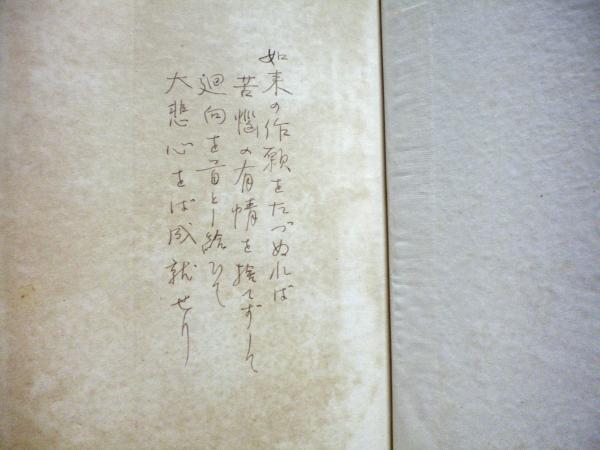 如来の作願をたづぬれば
苦悩の有情を捨てずして
廻向を首とし給ひて
大悲心をば成就せり